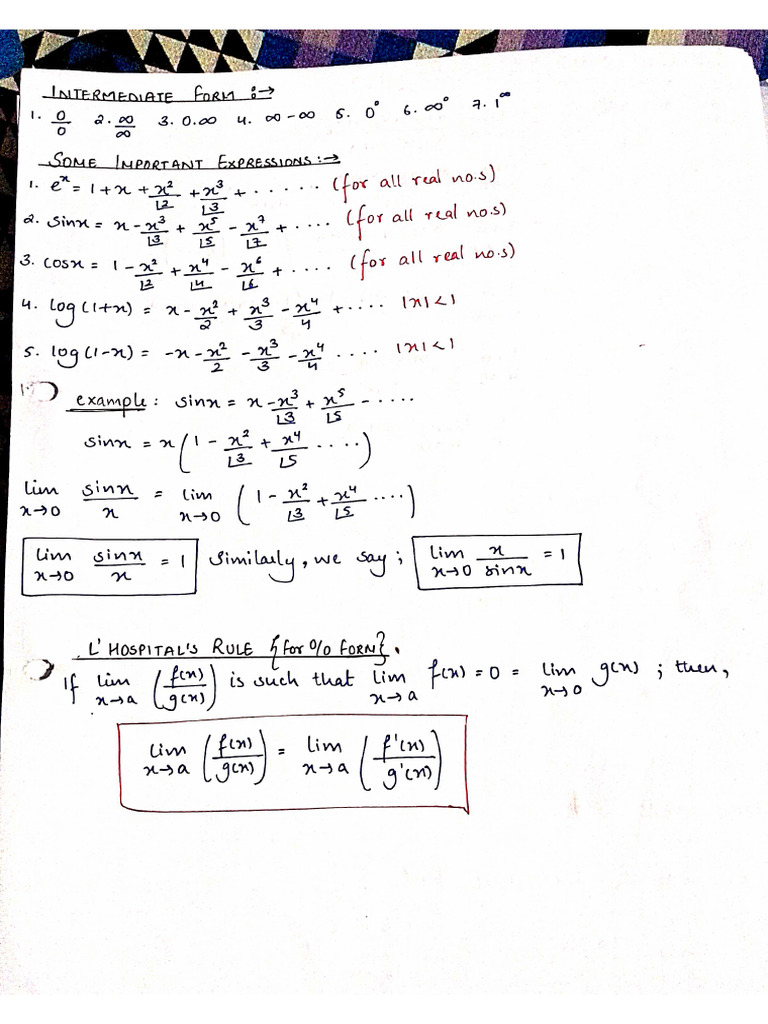 INTERMEDIATE FORM :→
1. 0/0 2. ∞/∞ 3. 0.∞ 4. ∞-∞ 5. 0° 6. ∞° 7. 1^∞
SOME IMPORTANT EXPRESSIONS:→
1. e^x = 1+x+x²/⌊2 + x³/⌊3 + ..... (for all real no.s)
2. sinx = x - x³/⌊3 + x⁵/⌊5 - x⁷/⌊7 + .... (for all real no.s)
3. cosx = 1 - x²/⌊2 + x⁴/⌊4 - x⁶/⌊6 + .... (for all real no.s)
4. log(1+x) = x - x²/2 + x³/3 - x⁴/4 + .... |x|<1
5. log(1-x) = -x - x²/2 - x³/3 - x⁴/4 .... |x|<1
example: sinx = x - x³/⌊3 + x⁵/⌊5 - ....
sinx = x(1 - x²/⌊3 + x⁴/⌊5 ....)
lim x→0 sinx/x = lim x→0 (1 - x²/⌊3 + x⁴/⌊5 ....)
lim x→0 sinx/x = 1 Similarly, we say; lim x→0 x/sinx = 1
L'HOSPITAL'S RULE {for 0/0 FORM}.
If lim x→a (f(x)/g(x)) is such that lim x→a f(x) = 0 = lim x→0 g(x) ; then,
lim x→a (f(x)/g(x)) = lim x→a (f'(x)/g'(x))